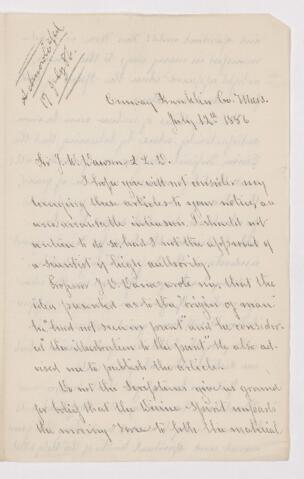 Acknowledged
17 July 86.
Conway Franklin Co. Mass.
July 12th 1886
Sir J. W. Dawson L.L.D.
I hope you will not consider my
these articles to your notice, an
unwarrantable intrusion. I should not
venture to do so, had I not the approval of
a scientist of high authority.
Professor J. D. Dana wrote me, that the
idea presented as to the "origin of man"
he "had not seen in print" and he consider-
ed "the illustration to the point." He also ad-
vised me to publish the article.
Do not the Scriptures give us ground
for belief that the Divine Spirit imparts
the moving force to both the material